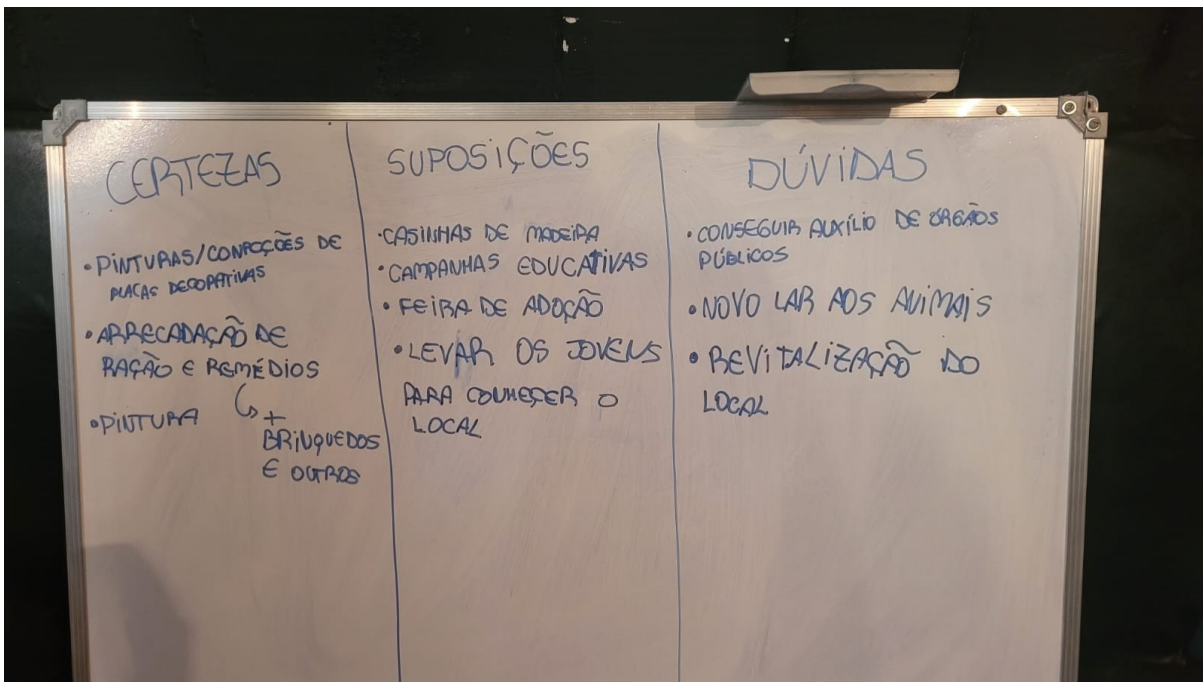 CERTEZAS
• PINTURAS/CONFECÇÕES DE
PLACAS DECORATIVAS
• ARRECADAÇÃO DE
RAÇÃO E REMÉDIOS
↳ +
BRINQUEDOS
E OUTROS
• PINTURA
SUPOSIÇÕES
• CASINHAS DE MADEIRA
• CAMPANHAS EDUCATIVAS
• FEIRA DE ADOÇÃO
• LEVAR OS JOVENS
PARA CONHEÇER O
LOCAL
DÚVIDAS
• CONSEGUIR AUXÍLIO DE ÓRGÃOS
PÚBLICOS
• NOVO LAR AOS ANIMAIS
• REVITALIZAÇÃO DO
LOCAL